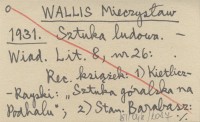 WALLIS Mieczysław
1931. Sztuka ludowa. -
Wiad. Lit. 8, nr 26:
Rec. książek: 1) Kietlicz-
-Rayski: "Sztuka góralska na
Podhalu"; 2) Stan. Barabasz:
./.